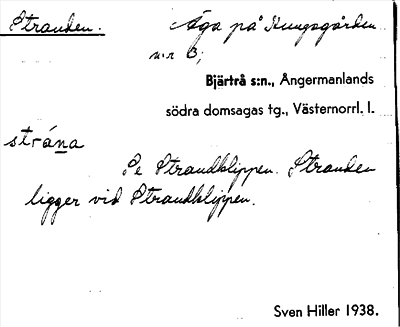 Stranden. Äga på Kungsgården
n:r 3;
Bjärtrå s:n., Ångermanlands
södra domsagas tg., Västernorrl. l.
strána
Se Strandklippen. Stranden
ligger vid Strandklippen.
Sven Hiller 1938.